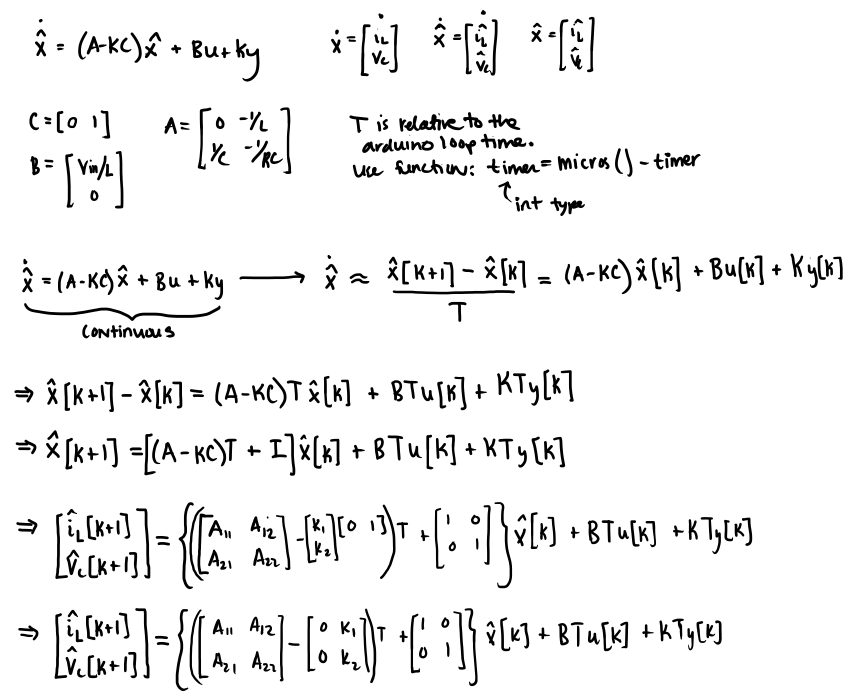 \dot{\hat{x}} = (A-KC)\hat{x} + Bu+Ky
\dot{x} = \begin{bmatrix} \dot{i_L} \\ v_c \end{bmatrix} \dot{\hat{x}} = \begin{bmatrix} \dot{\hat{i}_L} \\ \hat{v}_c \end{bmatrix} \hat{x} = \begin{bmatrix} \hat{i}_L \\ \hat{v}_c \end{bmatrix}
C = [0 1]
A = \begin{bmatrix} 0 & -1/L \\ 1/C & -1/RC \end{bmatrix}
B = \begin{bmatrix} Vin/L \\ 0 \end{bmatrix}
T is relative to the
arduino loop time.
Use function: timer = micros() - timer
↑ int type
\dot{\hat{x}} = (A-KC)\hat{x} + Bu + Ky ⟶ \dot{\hat{x}} ≈ \frac{\hat{x}[k+1] - \hat{x}[k]}{T} = (A-KC)\hat{x}[k] + Bu[k] + Ky[k]
Continuous
⇒ \hat{x}[k+1] - \hat{x}[k] = (A-KC)T\hat{x}[k] + BTu[k] + KTy[k]
⇒ \hat{x}[k+1] = [(A-KC)T + I]\hat{x}[k] + BTu[k] + KTy[k]
⇒ \begin{bmatrix} \hat{i}_L[k+1] \\ \hat{v}_c[k+1] \end{bmatrix} = \{(\begin{bmatrix} A_{11} & A_{12} \\ A_{21} & A_{22} \end{bmatrix} - \begin{bmatrix} k_1 \\ k_2 \end{bmatrix}[0 1])T + \begin{bmatrix} 1 & 0 \\ 0 & 1 \end{bmatrix}\}\hat{x}[k] + BTu[k] + KTy[k]
⇒ \begin{bmatrix} \hat{i}_L[k+1] \\ \hat{v}_c[k+1] \end{bmatrix} = \{(\begin{bmatrix} A_{11} & A_{12} \\ A_{21} & A_{22} \end{bmatrix} - \begin{bmatrix} 0 & k_1 \\ 0 & k_2 \end{bmatrix})T + \begin{bmatrix} 1 & 0 \\ 0 & 1 \end{bmatrix}\}\hat{x}[k] + BTu[k] + KTy[k]